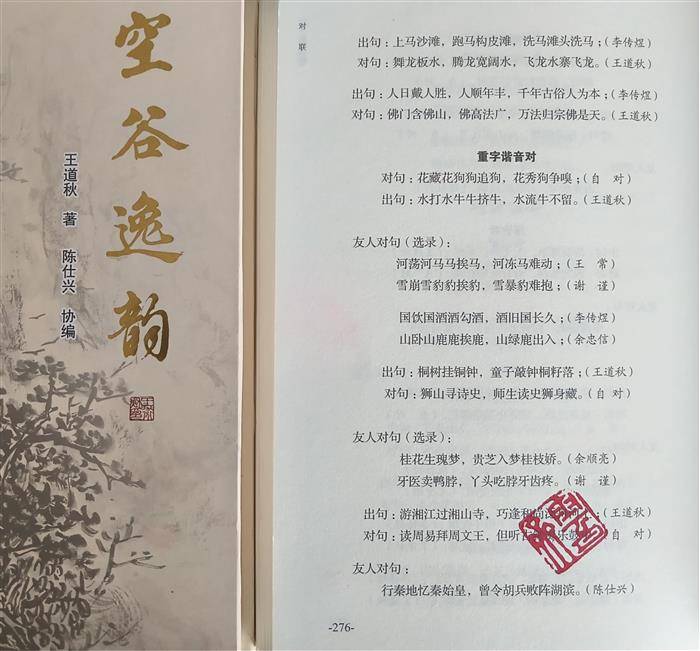 空谷逸韵
王道秋 著 陈仕兴 协编
对联
出句：上马沙滩，跑马构皮滩，洗马滩头洗马；(李传煜)
对句：舞龙板水，腾龙宽阔水，飞龙水寨飞龙。(王道秋)
出句：人日戴人胜，人顺年丰，千年古俗人为本；(李传煜)
对句：佛门含佛山，佛高法广，万法归宗佛是天。(王道秋)
重字谐音对
对句：花藏花狗狗追狗，花秀狗争嗅；(自 对)
出句：水打水牛牛挤牛，水流牛不留。(王道秋)
友人对句（选录）：
河荡河马马挨马，河冻马难动；(王 常)
雪崩雪豹豹挨豹，雪暴豹难抱；(谢 谨)
国饮国酒酒勾酒，酒旧国长久；(李传煜)
山卧山鹿鹿挨鹿，山绿鹿出入；(余忠信)
出句：桐树挂铜钟，童子敲钟桐籽落；(王道秋)
对句：狮山寻诗史，师生读史狮身藏。(自 对)
友人对句（选录）：
桂花生瑰梦，贵芝入梦桂枝娇。(余顺亮)
牙医卖鸭脖，丫头吃脖牙齿疼。(谢 谨)
出句：游湘江过湘山寺，巧逢和尚；(王道秋)
对句：读周易拜周文王，但听乐；(自 对)
友人对句：
行秦地忆秦始皇，曾令胡兵败阵湖滨。(陈仕兴)
-276-